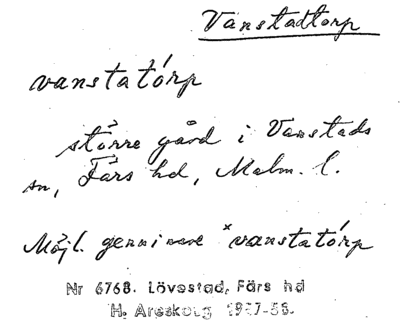 Vanstadtorp
vanstatórp
större gård i Vanstads
sn, Färs hd, Malm. l.
Möjl. genuinare ˣvanstatórp
Nr 6768. Lövestad, Färs hd
H. Areskoug 1937-38.